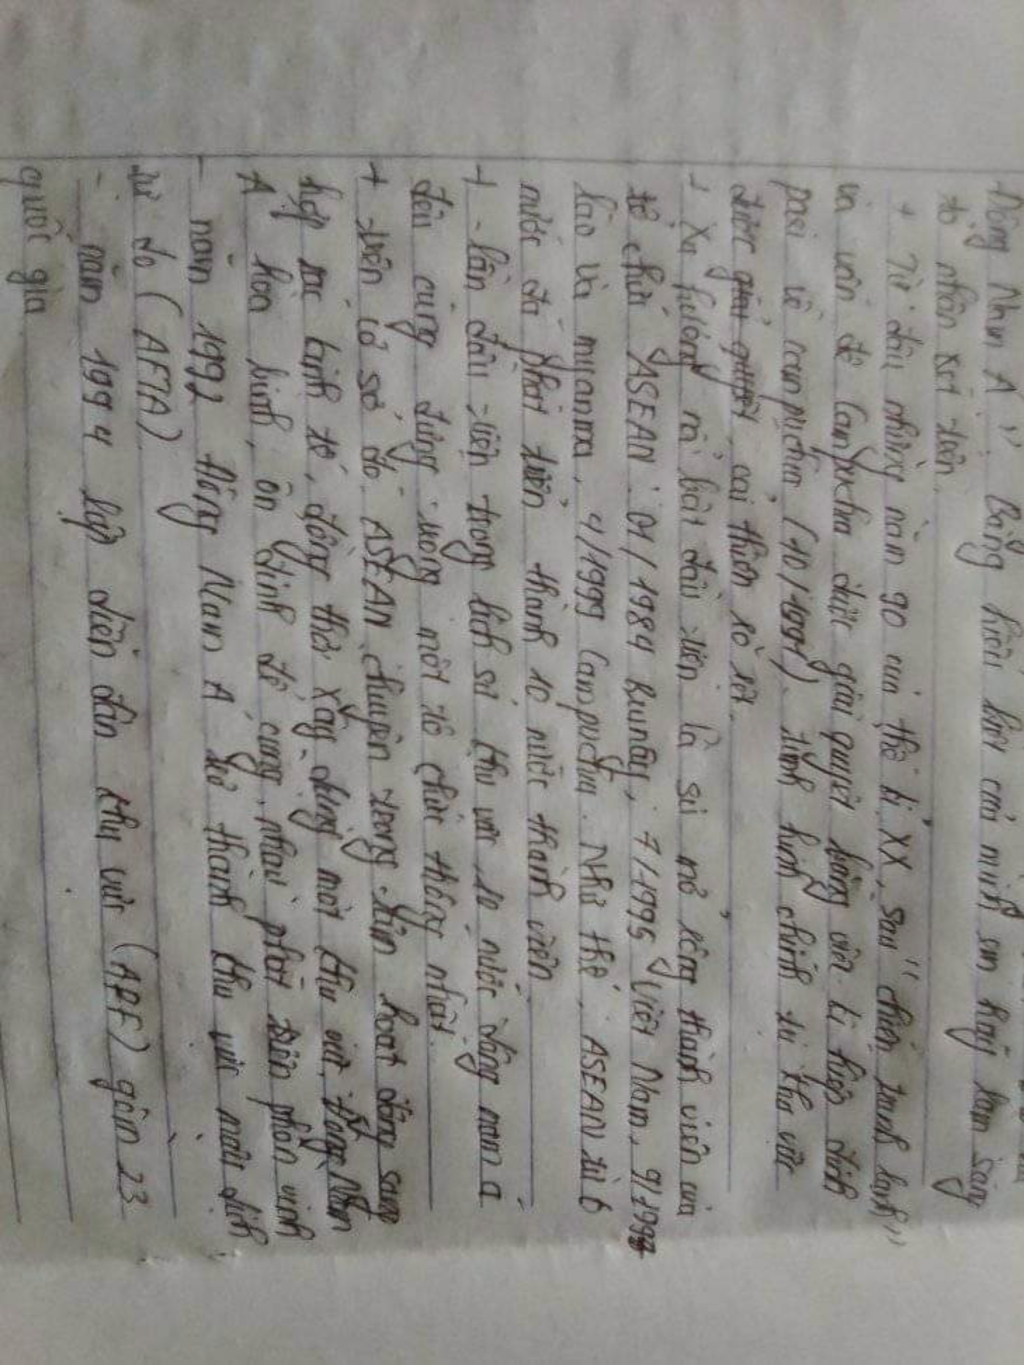 Đông Nam Á". Bằng hiểu biết của mình em hãy làm sáng
tỏ nhận xét trên.
+ Từ đầu những năm 90 của thế kỉ XX, sau "chiến tranh lạnh"
và vấn đề Campuchia được giải quyết bằng việc kí hiệp định
pari về campuchia (10/1991). tình hình chính trị khu vực
được giải quyết, cải thiện rõ rệt.
+ Xu hướng nổi bật đầu tiên là sự mở rộng thành viên của
tổ chức ASEAN: 01/1984 Brunây, 7/1995 Việt Nam, 9/1997
Lào và myanma, 4/1999 Campuchia. Như thế, ASEAN từ 6
nước đã phát triển thành 10 nước thành viên
+ - lần đầu tiên trong lịch sử khu vực 10 nước đông nam á
đều cùng đứng trong một tổ chức thống nhất.
+ trên cơ sở đó, ASEAN chuyển trọng tâm hoạt động sang
hợp tác kinh tế, đồng thời xây dựng một khu vực Đông Nam
Á hòa bình, ổn định để cùng nhau phát triển phồn vinh
- năm 1992 Đông Nam Á trở thành khu vực mậu dịch
tự do (AFTA)
- năm 1994 lập diễn đàn khu vực (ARF) gồm 23
quốc gia